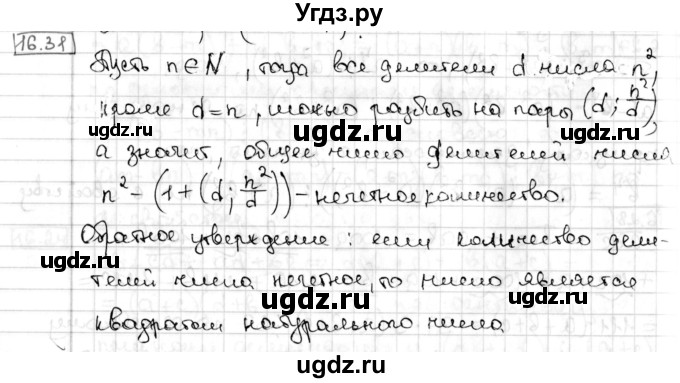 Угдз.ру
16.31
Пусть n∈N, тогда все делители d числа n²,
кроме d=n, можно разбить на пары (d; n²/d),
ugdz.ru ugdz.ru
а значит, общее число делителей числа
n² - (1+(d; n²/d)) - нечетное количество.
ugdz.ru ugdz.ru
Обратное утверждение: если количество дели-
ugdz.ru
телей числа нечетное, то число является
ugdz.ru ugdz.ru
квадратом натурального числа
ugdz.ru